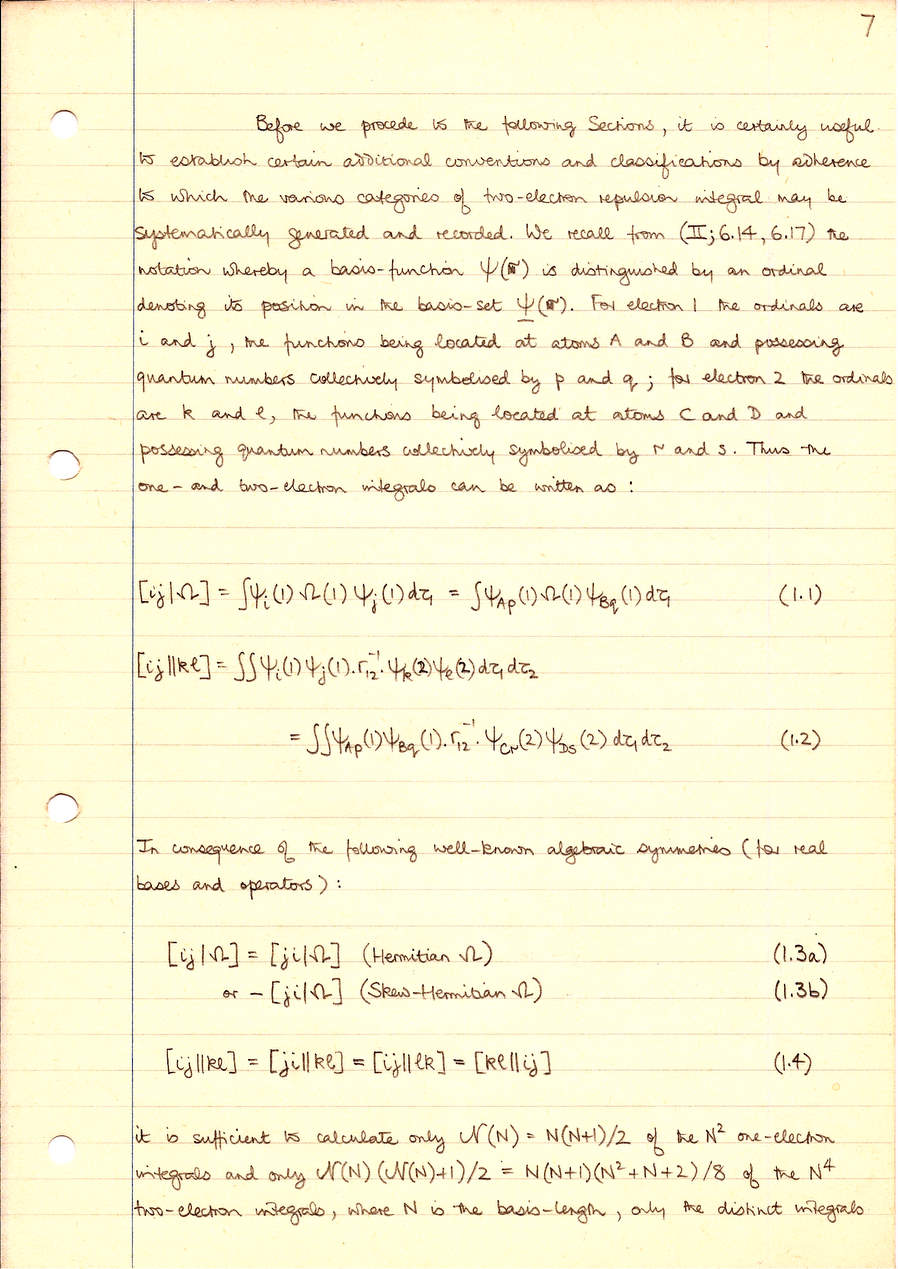 7
Before we procede to the following Sections, it is certainly useful
to establish certain additional conventions and classifications by adherence
to which the various categories of two-electron repulsion integral may be
systematically generated and recorded. We recall from (II; 6.14, 6.17) the
notation whereby a basis-function ψ(r) is distinguished by an ordinal
denoting its position in the basis-set ψ(r). For electron 1 the ordinals are
i and j, the functions being located at atoms A and B and possessing
quantum numbers collectively symbolised by p and q; for electron 2 the ordinals
are k and ℓ, the functions being located at atoms C and D and
possessing quantum numbers collectively symbolised by r and s. Thus the
one- and two-electron integrals can be written as:
[ij|Ω] = ∫ψᵢ(1) Ω(1) ψⱼ(1) dτ₁ = ∫ψ_Ap(1) Ω(1) ψ_Bq(1) dτ₁ (1.1)
[ij||kℓ] = ∫∫ψᵢ(1) ψⱼ(1) . r₁₂⁻¹ . ψₖ(2) ψ_ℓ(2) dτ₁ dτ₂
= ∫∫ψ_Ap(1) ψ_Bq(1) . r₁₂⁻¹ . ψ_Cr(2) ψ_Ds(2) dτ₁ dτ₂ (1.2)
In consequence of the following well-known algebraic symmetries (for real
bases and operators):
[ij|Ω] = [ji|Ω] (Hermitian Ω) (1.3a)
or - [ji|Ω] (Skew-Hermitian Ω) (1.3b)
[ij||kℓ] = [ji||kℓ] = [ij||ℓk] = [kℓ||ij] (1.4)
it is sufficient to calculate only 𝒩(N) = N(N+1)/2 of the N² one-electron
integrals and only 𝒩(N)(𝒩(N)+1)/2 = N(N+1)(N²+N+2)/8 of the N⁴
two-electron integrals, where N is the basis-length, only the distinct integrals